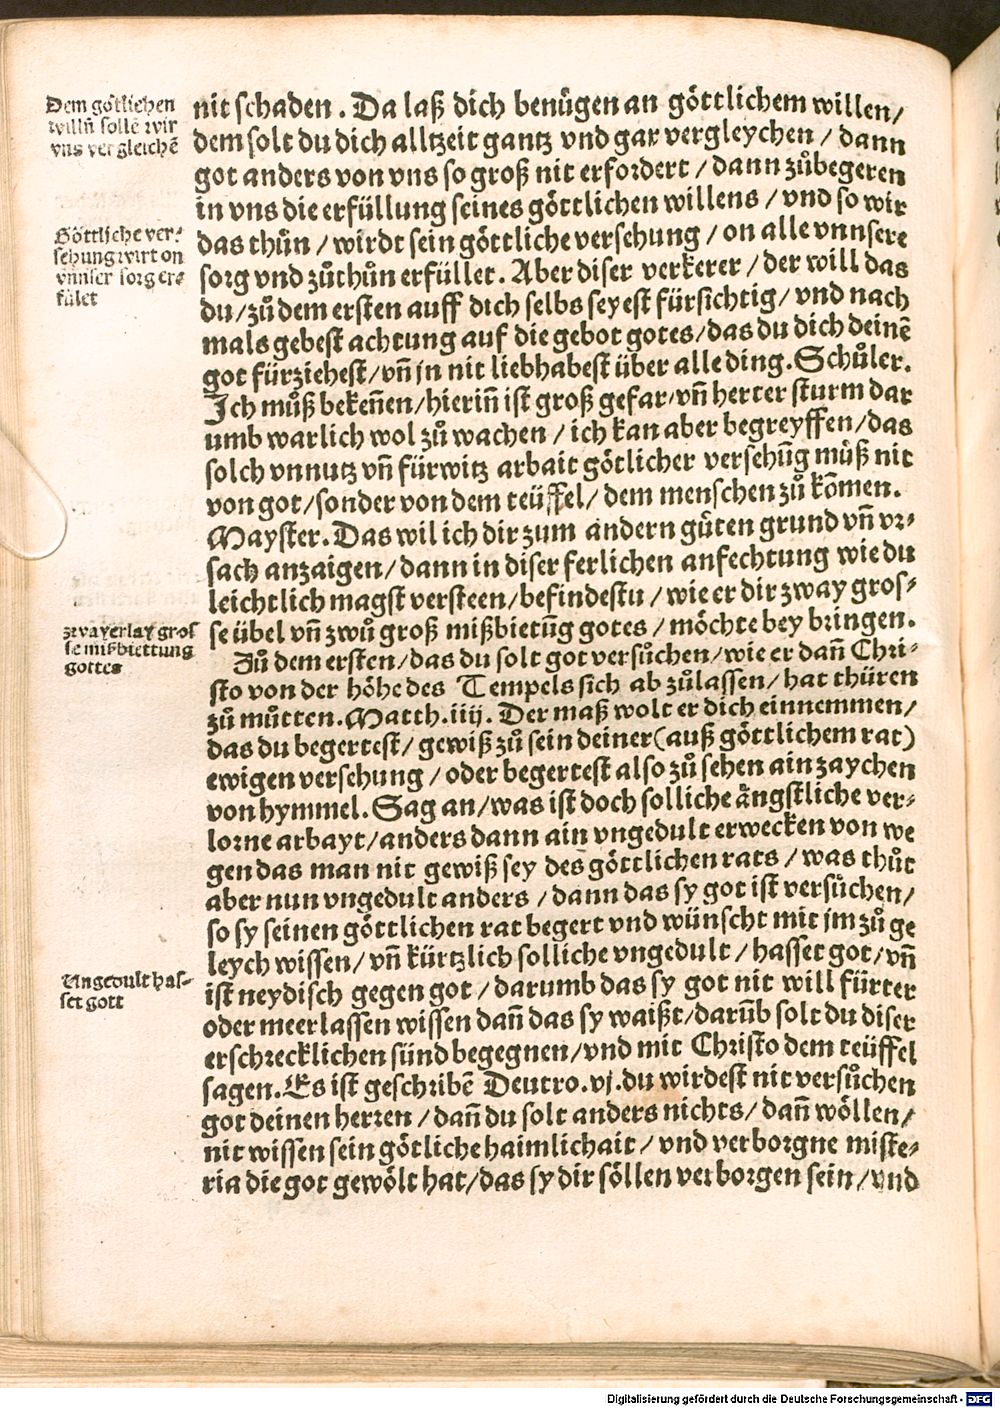 Dem götlichen
willñ sollē wir
vns vergleichē
Göttliche ver⸗
sehung wirt on
vnnser sorg er⸗
fület
zwayerlay gros
se mißbiettung
gottes
Vngedult has⸗
set gott
nit schaden. Da laß dich benügen an göttlichem willen/
dem solt du dich alltzeit gantz vnd gar vergleychen/ dann
got anders von vns so groß nit erfordert/ dann zůbegeren
in vns die erfüllung seines göttlichen willens/ vnd so wir
das thůn/ wirdt sein göttliche versehung/ on alle vnnsere
sorg vnd zůthůn erfüllet. Aber diser verkerer/ der will das
du/ zů dem ersten auff dich selbs seyest fürsichtig/ vnd nach
mals gebest achtung auf die gebot gotes/ das du dich deinē
got fürziehest/ vñ jn nit liebhabest über alle ding. Schůler.
Ich můß bekeñen/ hieriñ ist groß gefar/ vñ herter sturm dar
umb warlich wol zů wachen/ ich kan aber begreyffen/ das
solch vnnutz vñ fürwitz arbait götlicher versehūg můß nit
von got/ sonder von dem teüffel/ dem menschen zů kōmen.
Mayster. Das wil ich dir zum andern güten grund vñ vr⸗
sach anzaigen/ dann in diser ferlichen anfechtung wie du
leichtlich magst versteen/ befindestu/ wie er dir zway gros⸗
se übel vñ zwů groß mißbietūg gotes/ möchte bey bringen.
Zů dem ersten/ das du solt got versůchen/ wie er dañ Chri⸗
sto von der höhe des Tempels sich ab zůlassen/ hat thüren
zů můtten. Matth. iiij. Der maß wolt er dich einnemmen/
das du begertest/ gewiß zů sein deiner (auß göttlichem rat)
ewigen versehung/ oder begertest also zů sehen ain zaychen
von hymmel. Sag an/ was ist doch solliche ängstliche ver⸗
lorne arbayt/ anders dann ain vngedult erwecken von we
gen das man nit gewiß sey des göttlichen rats/ was thůt
aber nun vngedult anders/ dann das sy got ist versůchen/
so sy seinen göttlichen rat begert vnd wünscht mit jm zů ge
leych wissen/ vñ kürtzlich solliche vngedult/ hasset got/ vñ
ist neydisch gegen got/ darumb das sy got nit will fürter
oder meer lassen wissen dañ das sy waißt/ darūb solt du diser
erschrecklichen sünd begegnen/ vnd mit Christo dem teüffel
sagen. Es ist geschribē Deutro. vj. du wirdest nit versůchen
got deinen herren/ dañ du solt anders nichts/ dañ wöllen/
nit wissen sein götliche haimlichait/ vnd verborgne miste⸗
ria die got gewölt hat/ das sy dir söllen verborgen sein/ vnd
Digitalisierung gefördert durch die Deutsche Forschungsgemeinschaft - DFG